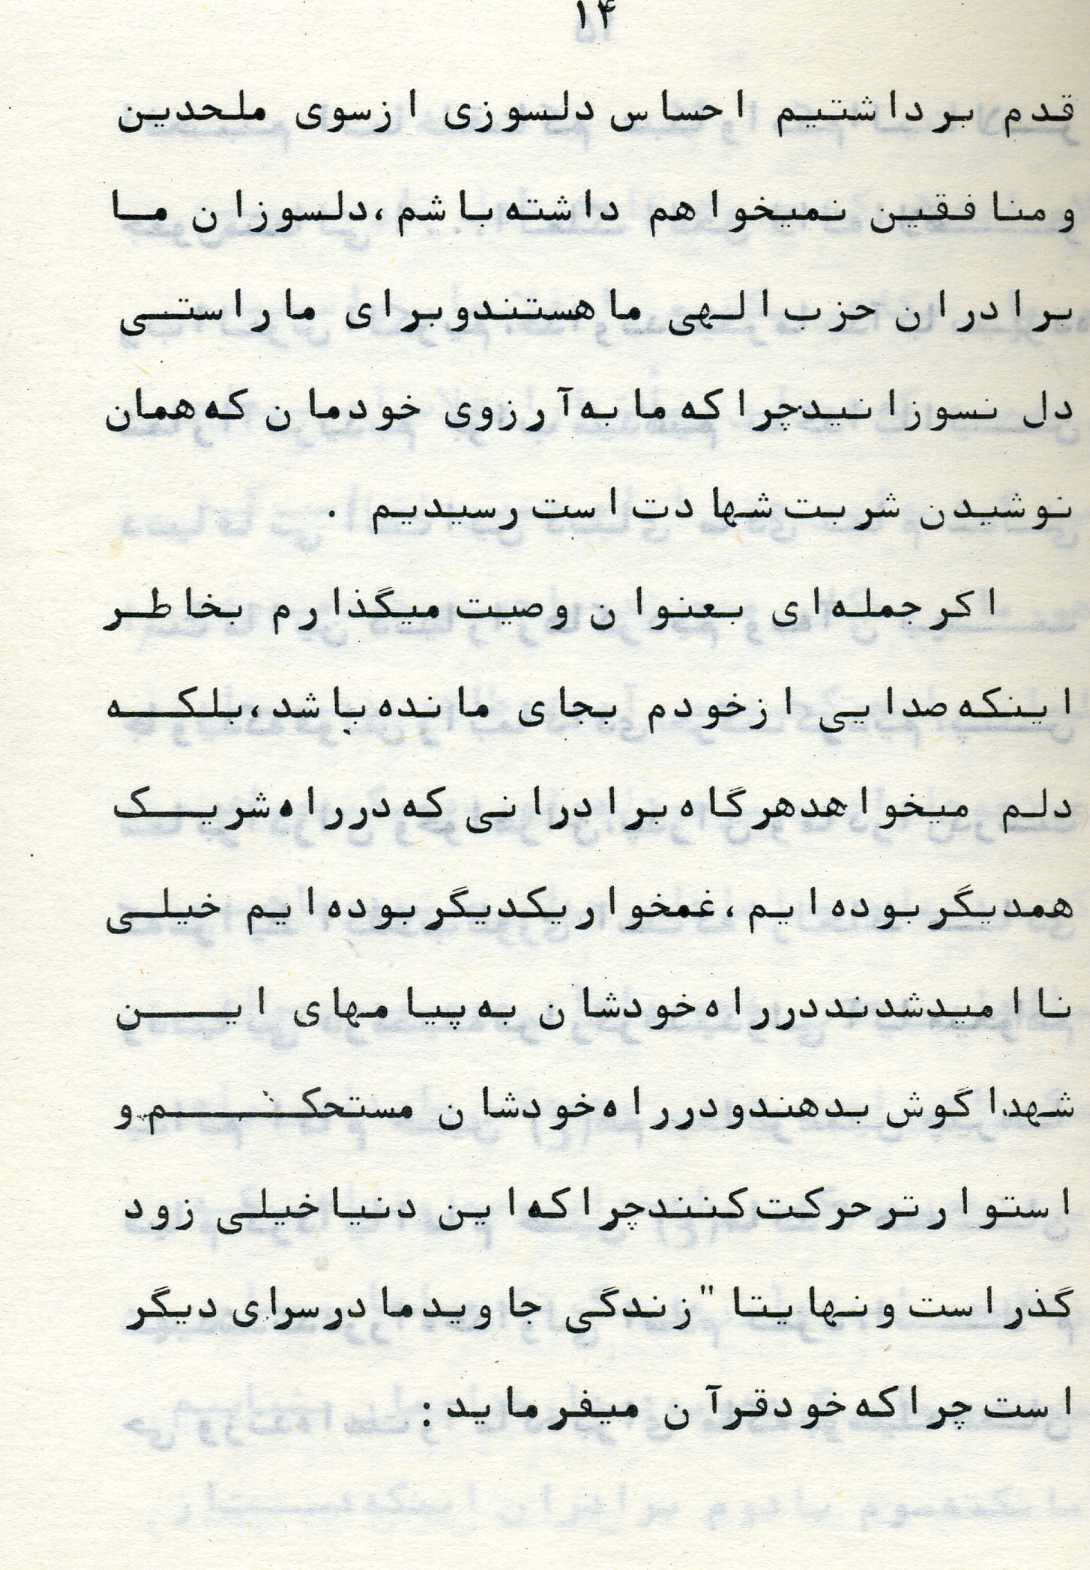 ۱۴
قدم برداشتیم احساس دلسوزی ازسوی ملحدین
ومنافقین نمیخواهم داشته‌باشم،دلسوزان ما
برادران حزب الهی ماهستندوبرای ماراستی
دل نسوزانیدچراکه مابه‌آرزوی خودمان که‌همان
نوشیدن شربت شهادت است رسیدیم .
اکرجمله‌ای بعنوان وصیت میگذارم بخاطر
اینکه صدایی ازخودم بجای مانده‌باشد،بلکه
دلم میخواهدهرگاه برادرانی که درراه شریک
همدیگربوده‌ایم،غمخواریکدیگربوده‌ایم خیلی
ناامیدشدنددرراه خودشان به پیامهای این
شهداگوش بدهندودرراه خودشان مستحکم و
استوارترحرکت کنندچراکه این دنیاخیلی زود
گذراست ونهایتا"زندگی جاویدمادرسرای دیگر
است چراکه خودقرآن میفرماید: